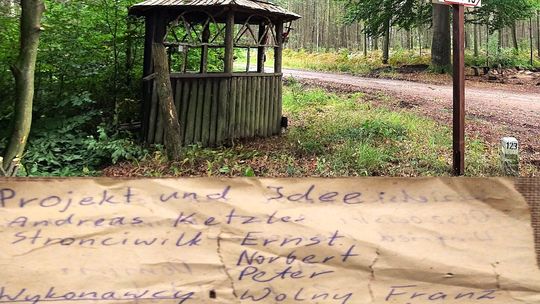 123
Projekt und Idee
Andreas Ketzler
Stronciwilk Ernst
Norbert
Peter
Wykonawcy Wolny Franz